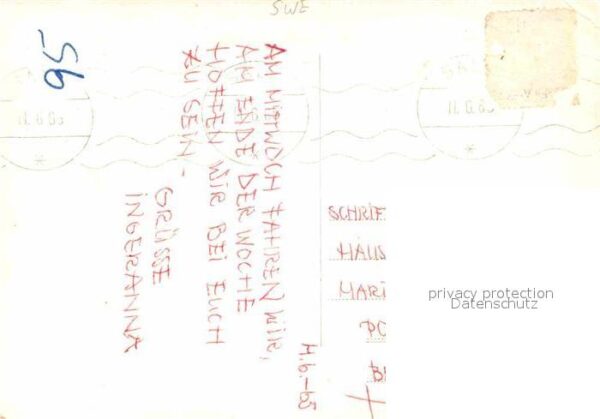 SWE
56
AM MITTWOCH FAHREN WIR,
AM ENDE DER WOCHE
HOFFEN WIR BEI EUCH
ZU SEIN -
GRÜSSE
INGERANNA
11.6.65
SCHRIF
HAUS
MARI
PO
privacy protection
Datenschutz